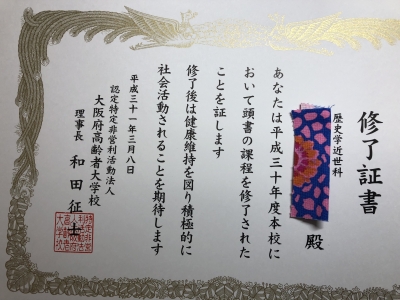 修了証書
歴史学近世科
殿
あなたは平成三十年度本校に
おいて頭書の課程を修了された
ことを証します
修了後は健康維持を図り積極的に
社会活動されることを期待します
平成三十一年三月八日
認定特定非営利活動法人
大阪府高齢者大学校
理事長 和田征士